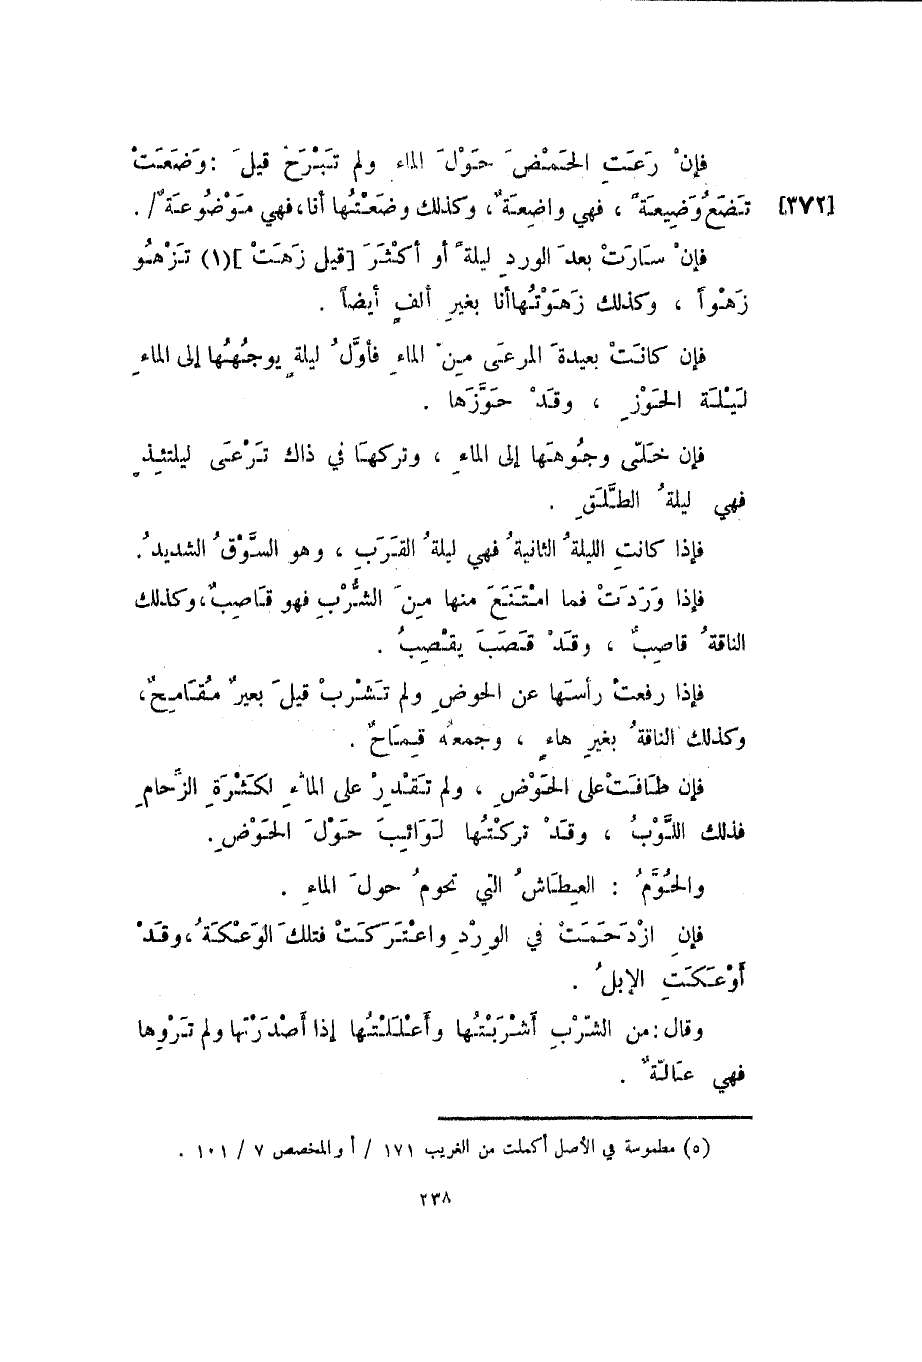 فإنْ رَعَتِ الحَمْضَ حَوْلَ الماء ولم تَبْرَحْ قيلَ : وَضَعَتْ
[٣٧٢] تَضَعُ وَضِيعَةً ، فهي واضِعَةٌ ، وكذلك وضَعْتُها أنا، فهي مَوْضُوعَةٌ / .
فإنْ سَارَتْ بعدَ الوردِ ليلةً أو أكثَرَ [قيل زَهَتْ ](١) تَزْهُو
زَهْواً ، وكذلك زَهَوْتُهاأنا بغيرِ ألفٍ أيضاً .
فإن كانَتْ بعيدةَ المرعَى مِنَ الماءِ فأوَّلُ ليلةٍ يوجهُها إلى الماءِ
لَيْلَة الحَوْزِ ، وقَدْ حَوَّزَها .
فإن خَلّى وجُوهَها إلى الماءِ ، وتركهَا في ذاك تَرْعَى ليلتئِذٍ
فهي ليلةُ الطَّلَقِ .
فإذا كانتِ الليلةُ الثانيةُ فهي ليلةُ القَرَبِ ، وهو السَّوْقُ الشديدُ .
فإذا وَرَدَتْ فما امْتَنَعَ منها مِنَ الشُّرْبِ فهو قَاصِبٌ، وكذلك
الناقةُ قاصِبٌ ، وقَدْ قَصَبَ يقْصِبُ .
فإذا رفعتْ رأسَها عن الحوضِ ولم تَشْربْ قيلَ بعيرٌ مُقَامِحٌ،
وكذلك الناقةُ بغيرِ هاءٍ ، وجمعهُ قِمَاحٌ .
فإن طَافَتْ على الحَوْضِ ، ولم تَقْدِرْ على الماءِ لكَثْرَةِ الزِّحامِ
فذلك اللَّوْبُ ، وقَدْ تركْتُها لَوَائِبَ حَوْلَ الحَوْضِ.
والحُوَّمُ : العِطَاشُ التي تحومُ حولَ الماءِ .
فإنِ ازْدَحَمَتْ في الوِرْدِ واعْتَرَكَتْ فتلكَ الوَعْكَةُ، وقَدْ
أَوْعَكَتِ الإبلُ .
وقال : من الشّرْبِ أَشْرَبْتُها وأَعْلَلْتُها إذا أَصْدَرْتَها ولم تَرْوِها
فهي عَالّةٌ .
(٥) مطموسة في الأصل أكملت من الغريب ١٧١ / أ والمخصص ٧ / ١٠١ .
٢٣٨